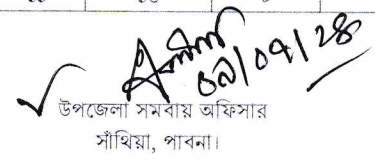 ০৯/০৭/২৪
উপজেলা সমবায় অফিসার
সাঁথিয়া, পাবনা।